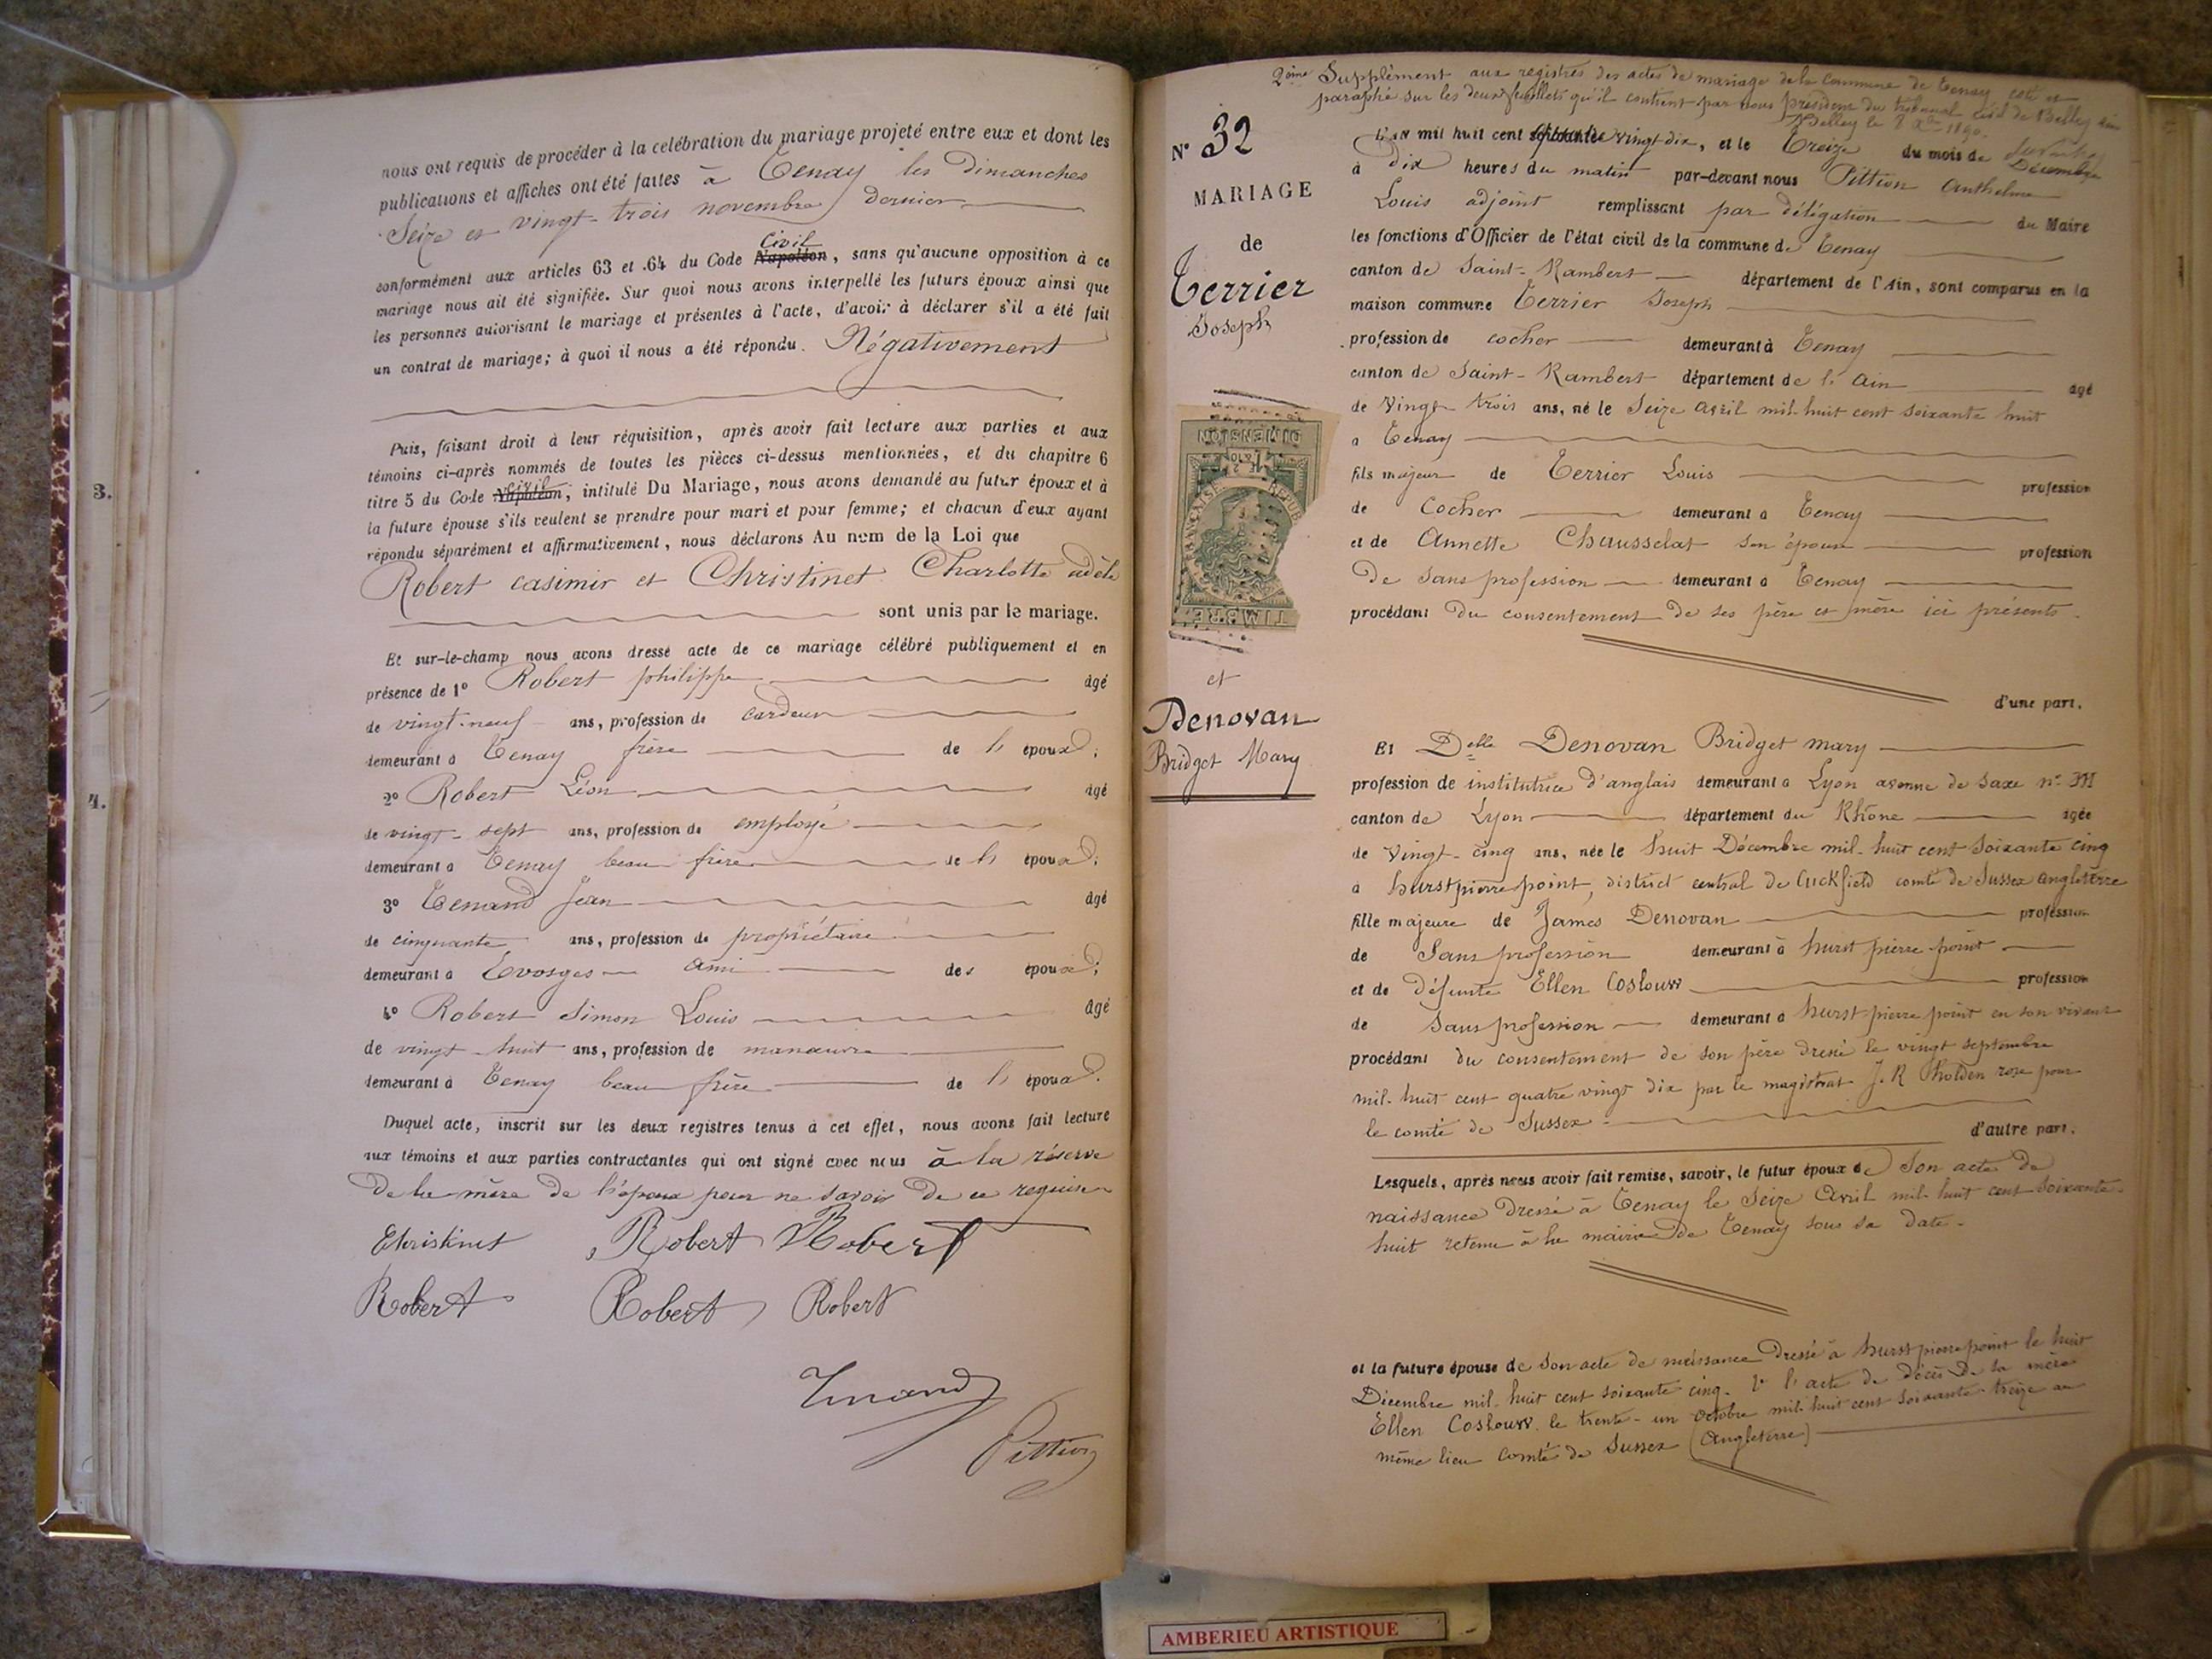 nous ont requis de procéder à la celébration du mariage projeté entre eux et dont les
publications et affiches ont été faites à Tenay les dimanches
Seize et vingt-trois novembre dernier
Civil
conformément aux articles 63 et 64 du Code Napoléon, sans qu'aucune opposition à ce
mariage nous ait été signifiée. Sur quoi nous avons interpellé les futurs époux ainsi que
les personnes autorisant le mariage et présentes à l'acte, d'avoir à déclarer s'il a été fait
un contrat de mariage; à quoi il nous a été répondu. Négativement
Puis, faisant droit à leur réquisition, après avoir fait lecture aux parties et aux
témoins ci-après nommés de toutes les pièces ci-dessus mentionnées, et du chapitre 6
civil
titre 5 du Code Napoléon, intitulé Du Mariage, nous avons demandé au futur époux et à
la future épouse s'ils veulent se prendre pour mari et pour femme; et chacun d'eux ayant
répondu séparément et affirmativement, nous déclarons Au nom de la Loi que
Robert casimir et Christinet Charlotte adèle
sont unis par le mariage.
Et sur-le-champ nous avons dressé acte de ce mariage célébré publiquement et en
présence de 1° Robert philippe âgé
de vingt-neuf ans, profession de cardeur
demeurant à Tenay frère de l' époux;
2° Robert Léon âgé
de vingt-sept ans, profession de employé
demeurant à Tenay beau frère de l' époux;
3° Tenand Jean âgé
de cinquante ans, profession de propriétaire
demeurant à Evosges ami des époux;
4° Robert Simon Louis âgé
de vingt-huit ans, profession de manœuvre
demeurant à Tenay beau frère de l' époux.
Duquel acte, inscrit sur les deux registres tenus à cet effet, nous avons fait lecture
aux témoins et aux parties contractantes qui ont signé avec nous à la réserve
de la mère de l'époux pour ne savoir de ce requise
Christinet Robert Robert
Robert Robert Robert
Tenand
Pittion
3.
4.
2ème Supplément aux registres des actes de mariage de la commune de Tenay coté et
paraphé sur les deux feuillets qu'il contient par nous président du tribunal civil de Belley
Belley le 8 1890.
N° 32
MARIAGE
de
Terrier
Joseph
DIMENSION
REPUB FRANÇAISE
TIMBRE
et
Denovan
Bridget Mary
L'an mil huit cent quatre vingt dix, et le Treize du mois de Décembre
à dix heures du matin par-devant nous Pittion Anthelme
Louis adjoint remplissant par délégation du Maire
les fonctions d'Officier de l'état civil de la commune de Tenay
canton de Saint-Rambert département de l'Ain, sont comparus en la
maison commune Terrier Joseph
profession de cocher demeurant à Tenay
canton de Saint-Rambert département de l'Ain agé
de Vingt-trois ans, né le Seize avril mil-huit cent soixante huit
à Tenay
fils majeur de Terrier Louis profession
de Cocher demeurant à Tenay
et de Annette Chausselat son épouse profession
De sans profession demeurant à Tenay
procédant du consentement de ses père et mère ici présents
d'une part.
Et Delle Denovan Bridget mary
profession de institutrice d'anglais demeurant à Lyon avenue de Saxe n°
canton de Lyon département du Rhône agée
de Vingt-cinq ans, née le huit Décembre mil-huit cent soixante cinq
à hurstpierrepoint, district central de Cuckfield comté de Sussex angleterre
fille majeure de James Denovan profession
de Sans profession demeurant à hurst pierre point
et de défunte Ellen Coslouw profession
de Sans profession demeurant à hurst pierre point en son vivant
procédant du consentement de son père dressé le vingt septembre
mil-huit cent quatre vingt dix par le magistrat J. R holden rose pour
le comté de Sussex
d'autre part.
Lesquels, après nous avoir fait remise, savoir, le futur époux de Son acte de
naissance Dressé à Tenay le Seize Avril mil-huit cent soixante
huit retenu à la mairie de Tenay sous sa date.
et la future épouse de Son acte de naissance Dressé à hurstpierrepoint le huit
Décembre mil-huit cent soixante cinq. 2° l'acte de décès de sa mère
Ellen Coslouw le trente-un octobre mil-huit cent soixante-treize au
même lieu comté de Sussex (Angleterre)
AMBERIEU ARTISTIQUE